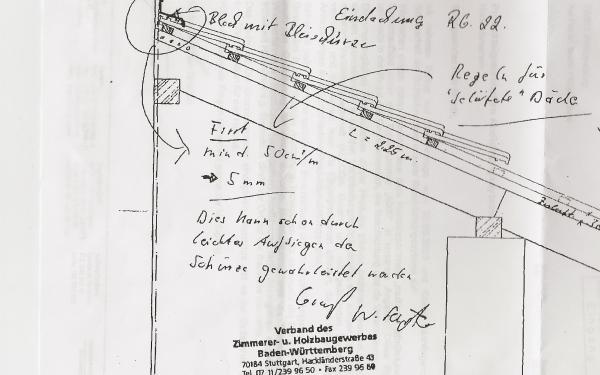 Blech mit Bleischürze
Eindeckung RG. 22.
Regeln für
"belüftete" Däche
L = 2.25 m.
First
mind. 50cm²/m
→ 5 mm
Dies kann schon durch
leichtes Aufliegen der
Schürze gewährleistet werden
Gruß
Verband des
Zimmerer- u. Holzbaugewerbes
Baden-Württemberg
70184 Stuttgart, Hackländerstraße 43
Tel. 07 11/239 96 50 • Fax 239 96 60